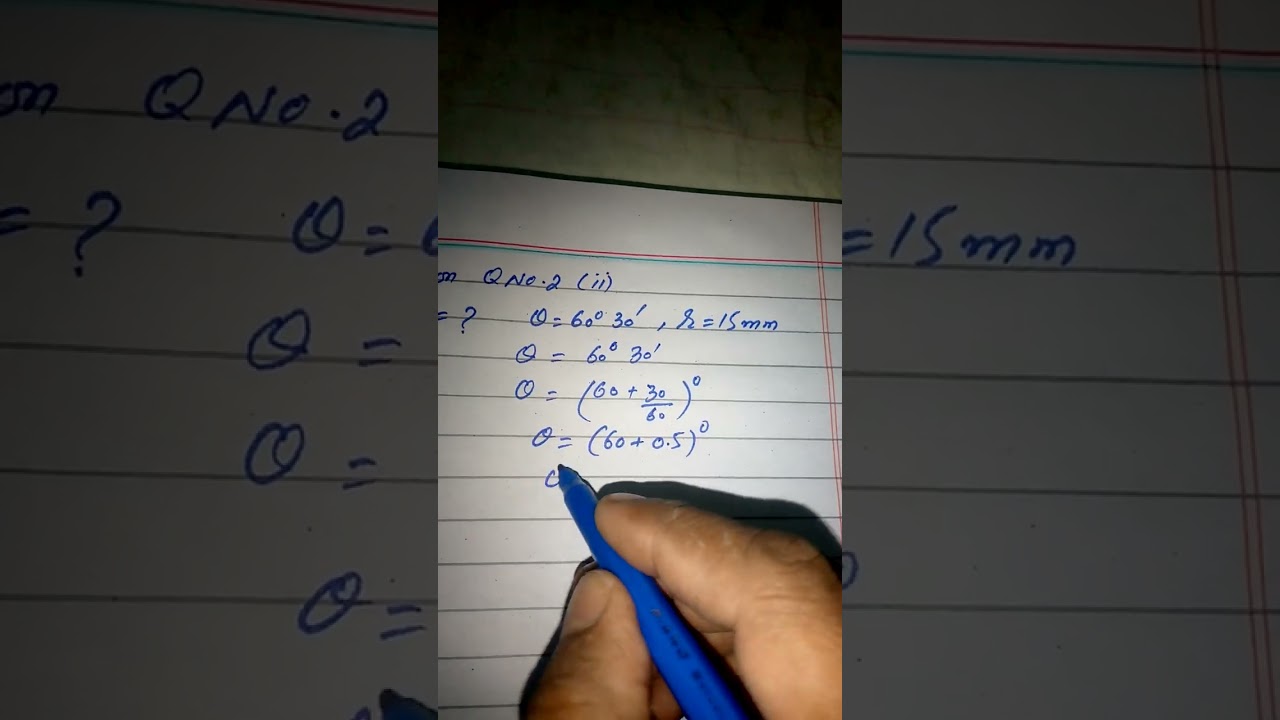 on QNo.2 (ii)
= ? θ = 60° 30′ , r = 15mm
θ = 60° 30′
θ = (60 + 30/60)°
θ = (60 + 0.5)°